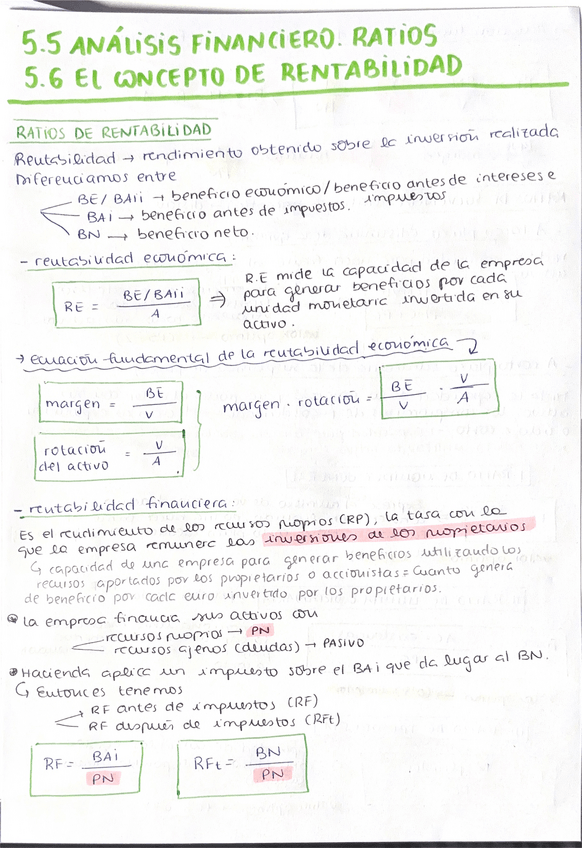 5.5 ANÁLISIS FINANCIERO. RATIOS
5.6 EL CONCEPTO DE RENTABILIDAD
RATIOS DE RENTABILIDAD
Rentabilidad → rendimiento obtenido sobre la inversión realizada
Diferenciamos entre
BE/BAii → beneficio económico/beneficio antes de intereses e impuestos
BAi → beneficio antes de impuestos.
BN → beneficio neto.
- rentabilidad económica:
RE = BE/BAii / A ⇒ R.E mide la capacidad de la empresa
para generar beneficios por cada
unidad monetaria invertida en su
activo.
→ Ecuación fundamental de la rentabilidad económica
margen = BE / V
rotación del activo = V / A
margen · rotación = BE / V · V / A
- rentabilidad financiera:
Es el rendimiento de los recursos propios (RP), la tasa con la
que la empresa remunera las inversiones de los propietarios
↳ capacidad de una empresa para generar beneficios utilizando los
recursos aportados por los propietarios o accionistas = Cuanto genera
de beneficio por cada euro invertido por los propietarios.
La empresa financia sus activos con
recursos propios → PN
recursos ajenos (deudas) → PASIVO
Hacienda aplica un impuesto sobre el BAi que da lugar al BN.
↳ Entonces tenemos
RF antes de impuestos (RF)
RF después de impuestos (RFt)
RF = BAi / PN
RFt = BN / PN